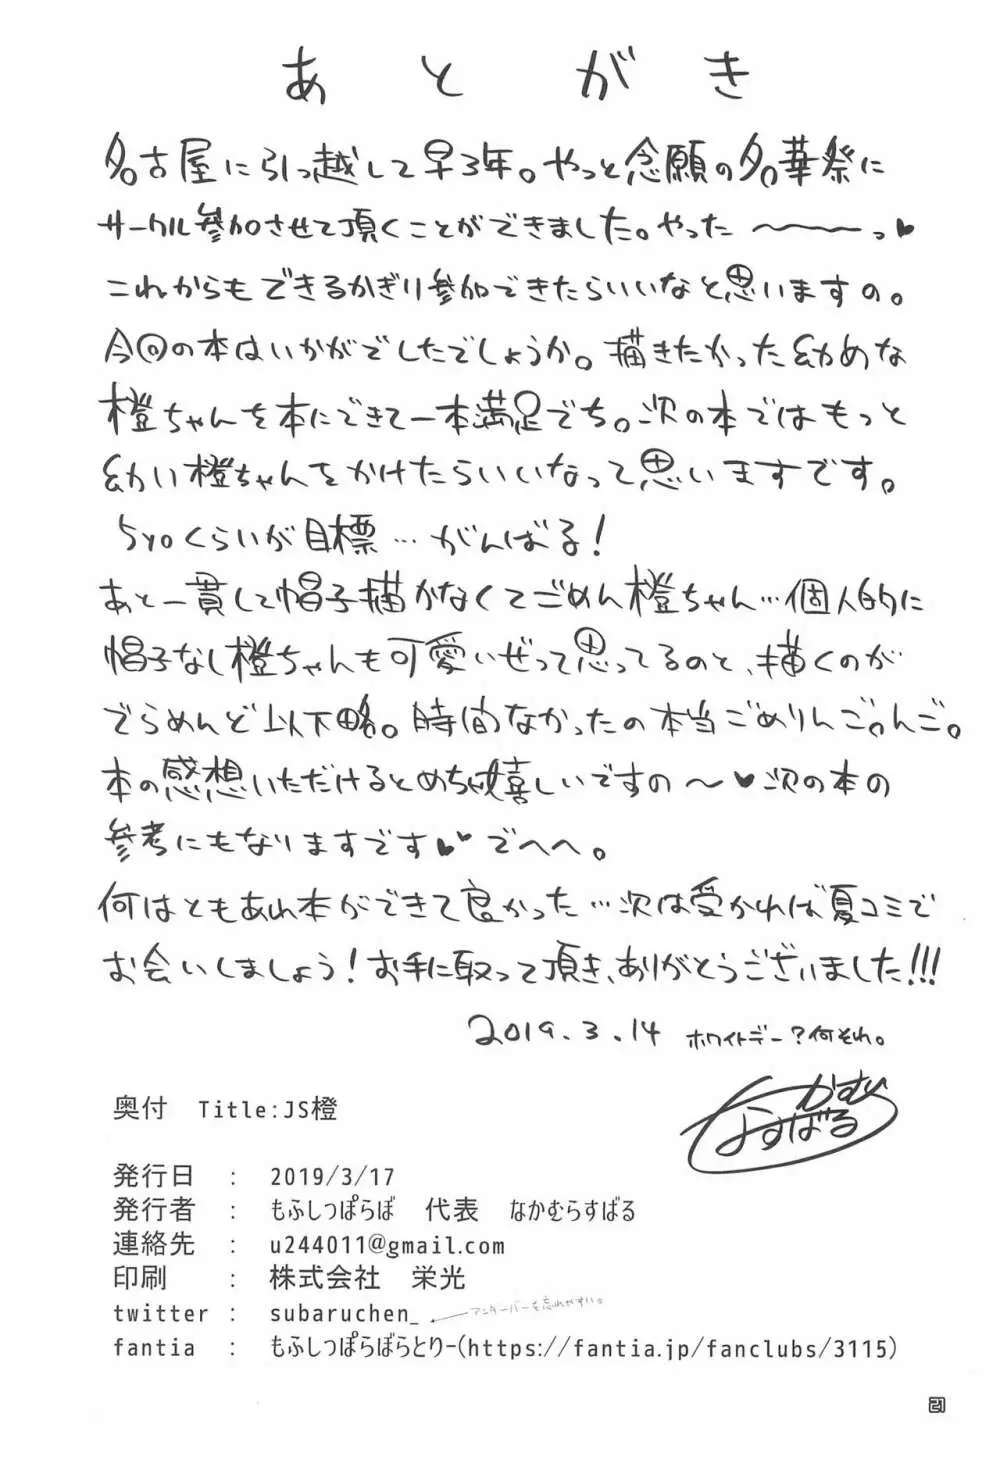 あとがき
名古屋に引っ越して早3年。やっと念願の名華祭に
サークル参加させて頂くことができました。やった〜〜〜っ♥
これからもできるかぎり参加できたらいいなと思いますの。
今回の本はいかがでしたでしょうか。描きたかった幼めな
橙ちゃんを本にできて一本満足でち。次の本ではもっと
幼い橙ちゃんをかけたらいいなって思いますです。
5yoくらいが目標…がんばる！
あと一貫して帽子描かなくてごめん橙ちゃん…個人的に
帽子なし橙ちゃんも可愛いぜって思ってるのと、描くのが
でらめんど以下略。時間なかったの本当ごめりんご。んご。
本の感想いただけるとめちゃ嬉しいですの〜♥次の本の
参考にもなりますです♥♥でへへ。
何はともあれ本ができて良かった…次は受かれば夏コミで
お会いしましょう！お手に取って頂き、ありがとうございました!!!
2019.3.14 ホワイトデー？何それ。
奥付 Title:JS橙
発行日 : 2019/3/17
発行者 : もふしっぽらぼ 代表 なかむらすばる
連絡先 : u244011@gmail.com
印刷 : 株式会社 栄光
twitter : subaruchen_ ←アンダーバーを忘れやすい。
fantia : もふしっぽらぼらとりー(https://fantia.jp/fanclubs/3115)
21